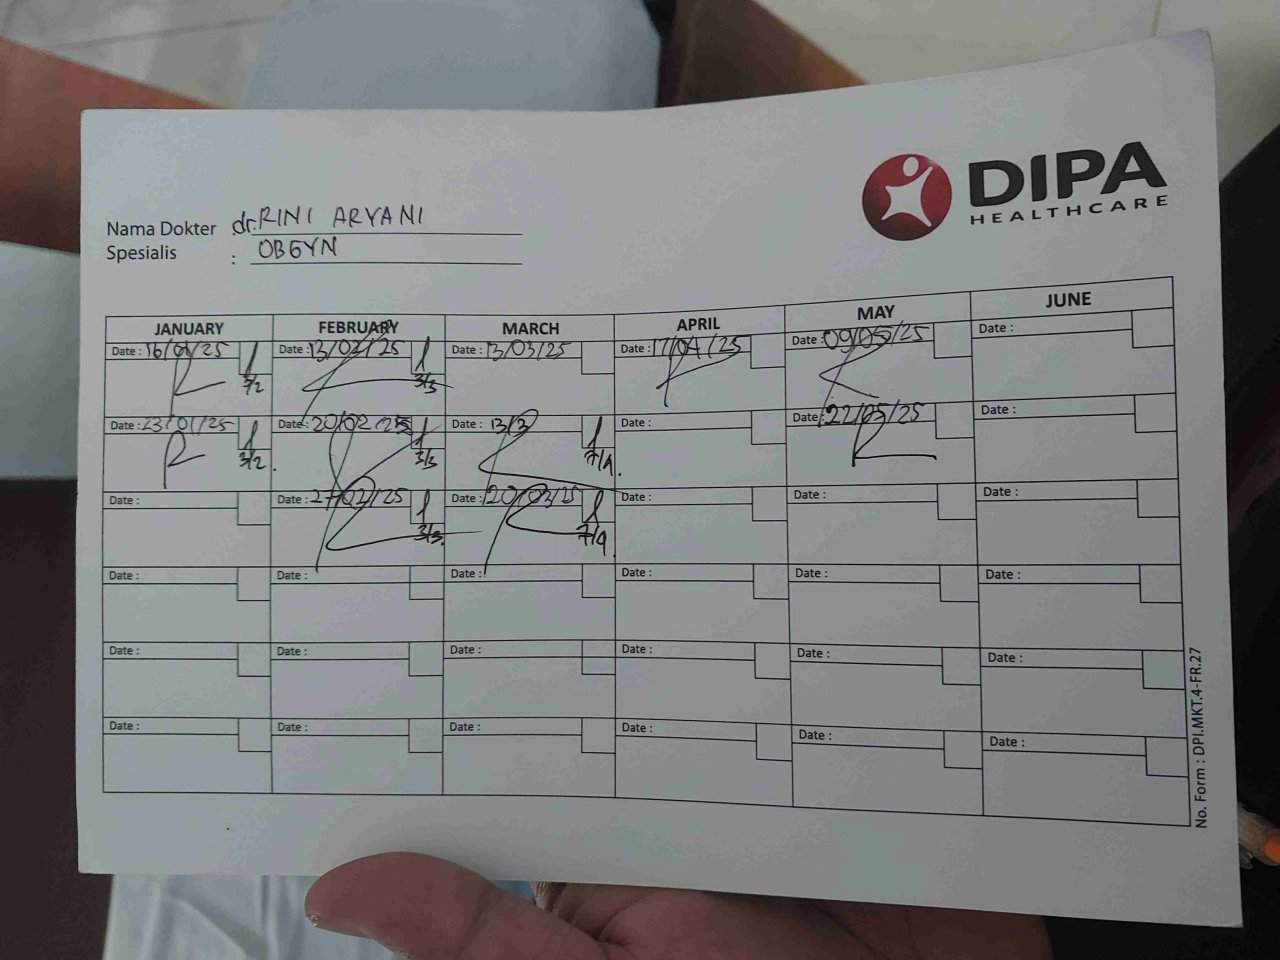 DIPA
HEALTHCARE
Nama Dokter dr. RINI ARYANI
Spesialis : OBGYN
JANUARY FEBRUARY MARCH APRIL MAY JUNE
Date : 16/01/25 Date : 13/02/25 Date : 13/03/25 Date : 17/04/25 Date : 09/05/25 Date :
3/2 3/3
Date : 23/01/25 Date : 20/02/25 Date : 13/3 Date : Date : 22/05/25 Date :
3/2 3/3 7/4
Date : Date : 27/02/25 Date : 20/03/25 Date : Date : Date :
3/3 7/4
Date : Date : Date : Date : Date : Date :
Date : Date : Date : Date : Date : Date :
Date : Date : Date : Date : Date : Date :
No. Form : DPI.MKT.4-FR.27